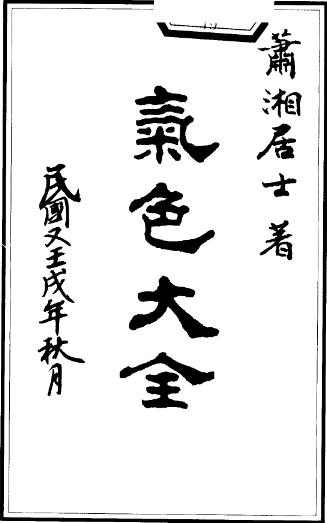 蕭湘居士 著
氣色大全
民國又壬戌年秋月